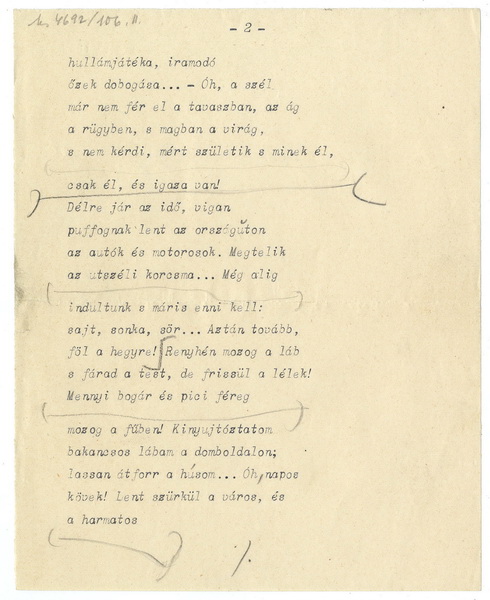 K. 4692/106. II.
- 2 -
hullámjátéka, iramodó
őzek dobogása... - Óh, a szél
már nem fér el a tavaszban, az ág
a rügyben, s magban a virág,
s nem kérdi, mért születik s minek él,
csak él, és igaza van!
Délre jár az idő, vigan
puffognak lent az országúton
az autók és motorosok. Megtelik
az utszéli korcsma... Még alig
indultunk s máris enni kell:
sajt, sonka, sör... Aztán tovább,
föl a hegyre! Renyhén mozog a láb
s fárad a test, de frissül a lélek!
Mennyi bogár és pici féreg
mozog a fűben! Kinyujtóztatom
bakancsos lábam a domboldalon;
lassan átforr a húsom... Óh, napos
kövek! Lent szürkül a város, és
a harmatos
./.